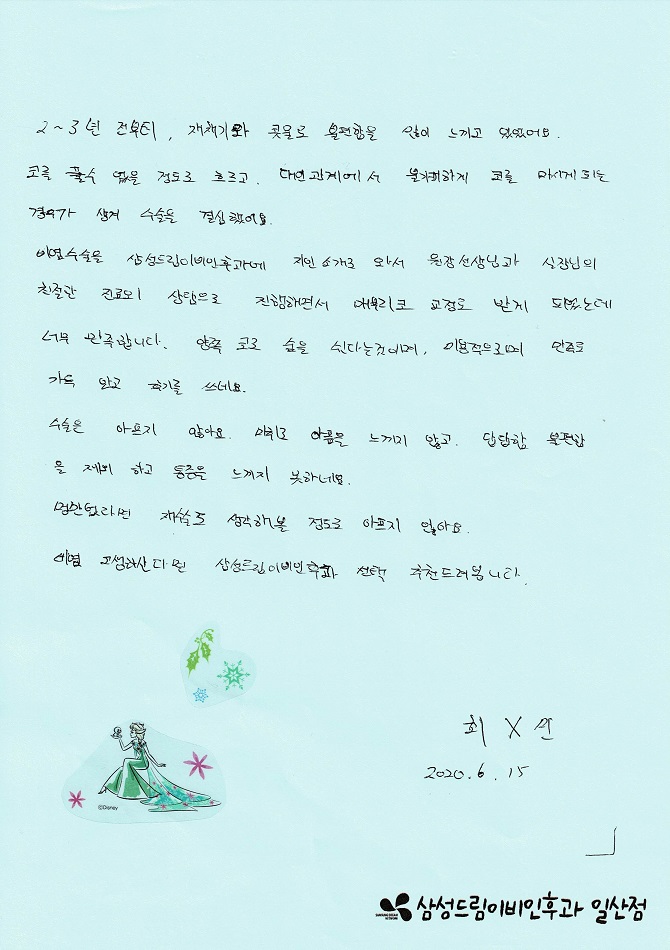 2~3년 전부터, 재채기와 콧물로 불편함을 많이 느끼고 있었어요.
코를 풀수 없을 정도로 흐르고. 대인관계에서 불가피하게 코를 마시게 되는
경우가 생겨 수술을 결심했어요.
비염수술을 삼성드림이비인후과에 지인소개로 와서 원장선생님과 실장님의
친절한 진료와 상담으로 진행하면서 매부리코 교정도 받게 되었는데
너무 만족합니다. 양쪽 코로 숨을 쉰다는것이며, 미용적으로며 만족도
가득 안고 후기를 쓰네요.
수술은 아프지 않아요. 마취로 아픔을 느끼지 않고. 답답함 불편함
을 제외 하고 통증을 느끼지 못하네요.
멍만없다면 재수술도 생각해볼 정도로 아프지 않아요.
비염 고생하신다면 삼성드림이비인후과 선택 추천드려봅니다.
최X연
2020.6.15
©Disney
SAMSUNG DREAM NETWORK
삼성드림이비인후과 일산점